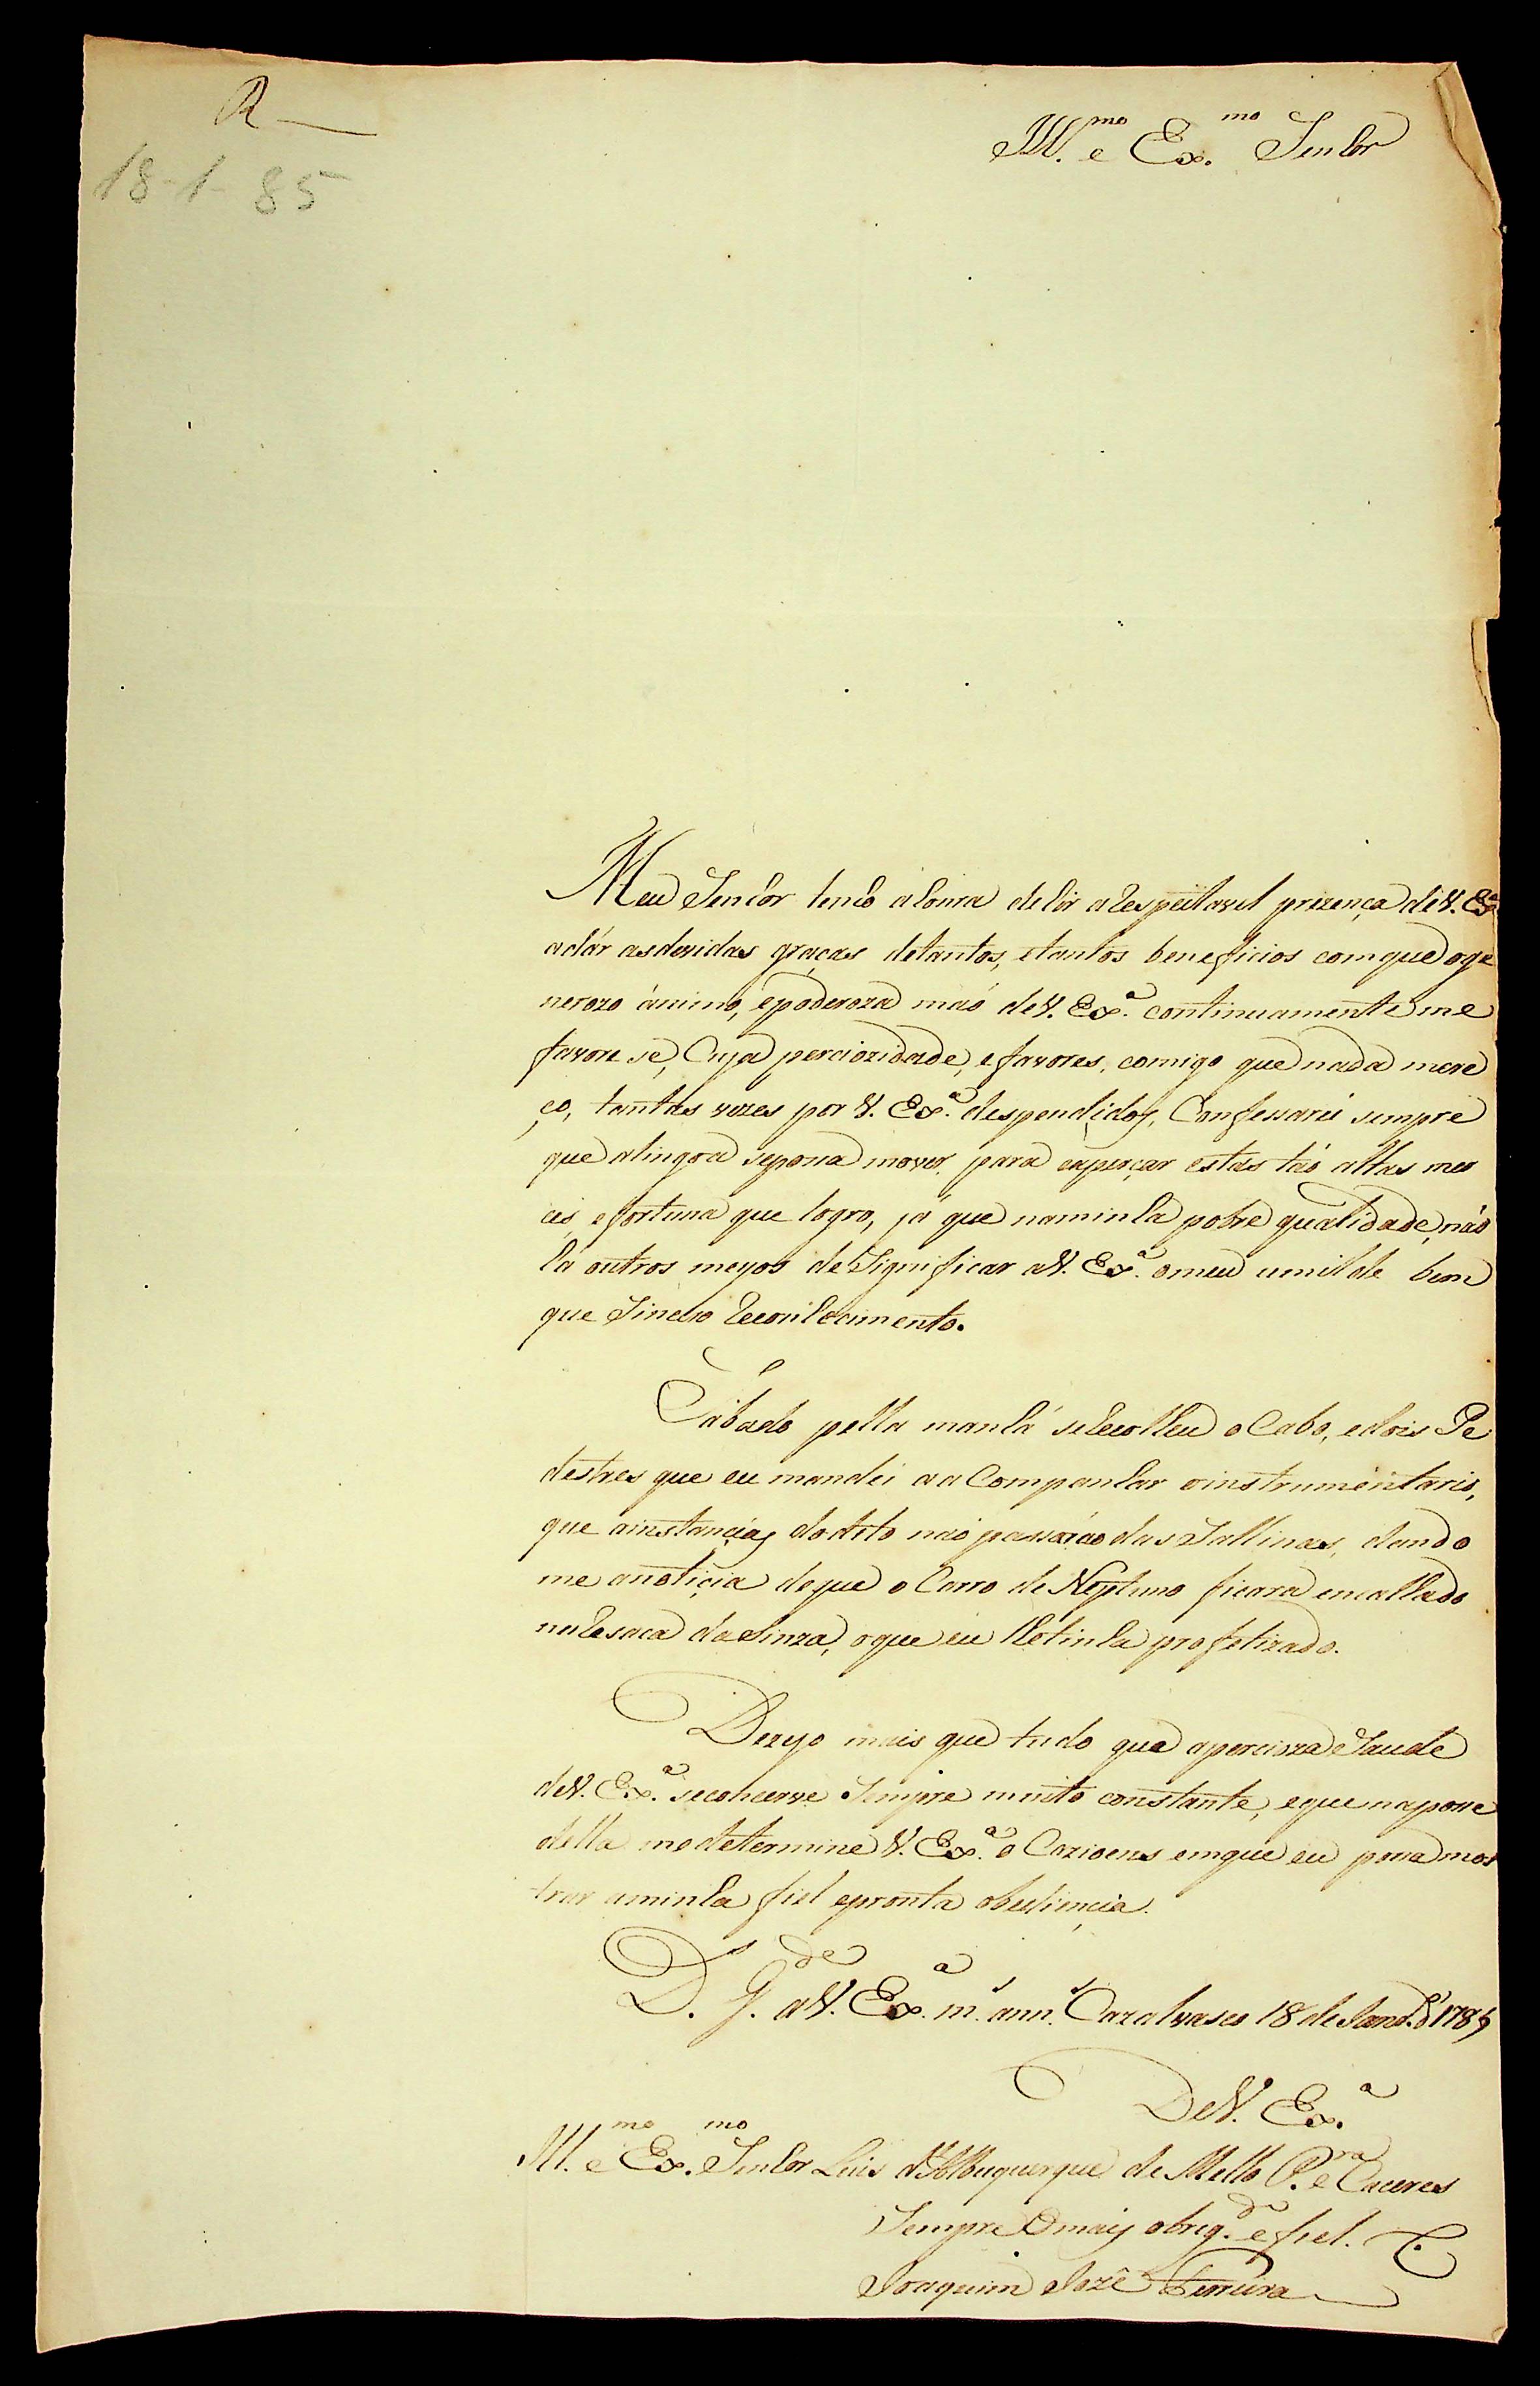 R
18-1-85
Ill.mo e Ex.mo Senhor
Meu Senhor tenho a honra de hir a Respeitavel prezença de V. Ex.a
a dár as devidas graças de tantos, e tantos beneficios com que o ge
nerozo ánimo, e poderoza máo de V. Ex.a continuamente me
favore se, Cuja perciozidade, e favores, comigo que nada mere
ço, tantas vezes por V. Ex.a despendidos, Confessarei sempre
que a lingoa se possa mover para experçar estas táo altas mer
cés, e fortuna que logro, já que na minha pobre qualidade, náo
há outros meyos de Significar a V. Ex.a o meu umilde bem
que Sincero Reconhecimento.
Sábado pella manhá se Recolheu o Cabo, e dois Pe
destres que eu mandei a a Companhar o instrumentario,
que a instancias do dito náo passárao das Sallinas, dando
me a noticia de que o Carro de Neptuno ficara encallado
na Resaca da Sinza, o que eu lhe tinha profetizado.
Dezejo mais que tudo que a percioza Saude
de V. Ex.a se concerve Sempre muito constante, e que na posse
della me determine V. Ex.a o Cazioens em que eu possa mos
trar a minha fiel e pronta obediencia.
D.s G.de a V. Ex.a m.s ann.s Cazalvasco 18 de Janr.o 1785
De V. Ex.a
Ill.mo e Ex.mo Senhor Luis d'Albuquerque de Mello P.ra e Caceres
Sempre O mais obrig.do e fiel. C.
Joaquim Jozé Ferreira